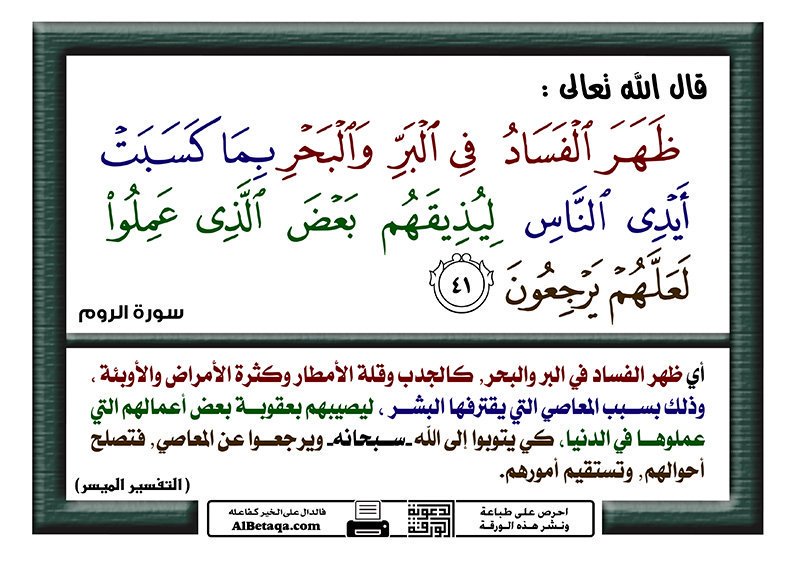 قال الله تعالى :
ظَهَرَ ٱلْفَسَادُ فِى ٱلْبَرِّ وَٱلْبَحْرِ بِمَا كَسَبَتْ
أَيْدِى ٱلنَّاسِ لِيُذِيقَهُم بَعْضَ ٱلَّذِى عَمِلُوا۟
لَعَلَّهُمْ يَرْجِعُونَ ٤١
سورة الروم
أي ظهر الفساد في البر والبحر, كالجدب وقلة الأمطار وكثرة الأمراض والأوبئة ،
وذلك بسبب المعاصي التي يقترفها البشر ، ليصيبهم بعقوبة بعض أعمالهم التي
عملوها في الدنيا، كي يتوبوا إلى الله -سبحانه- ويرجعوا عن المعاصي, فتصلح
أحوالهم, وتستقيم أمورهم.
( التفسير الميسر )
احرص على طباعة
ونشر هذه الورقة
دعوية
الورقة
فالدال على الخير كفاعله
AlBetaqa.com